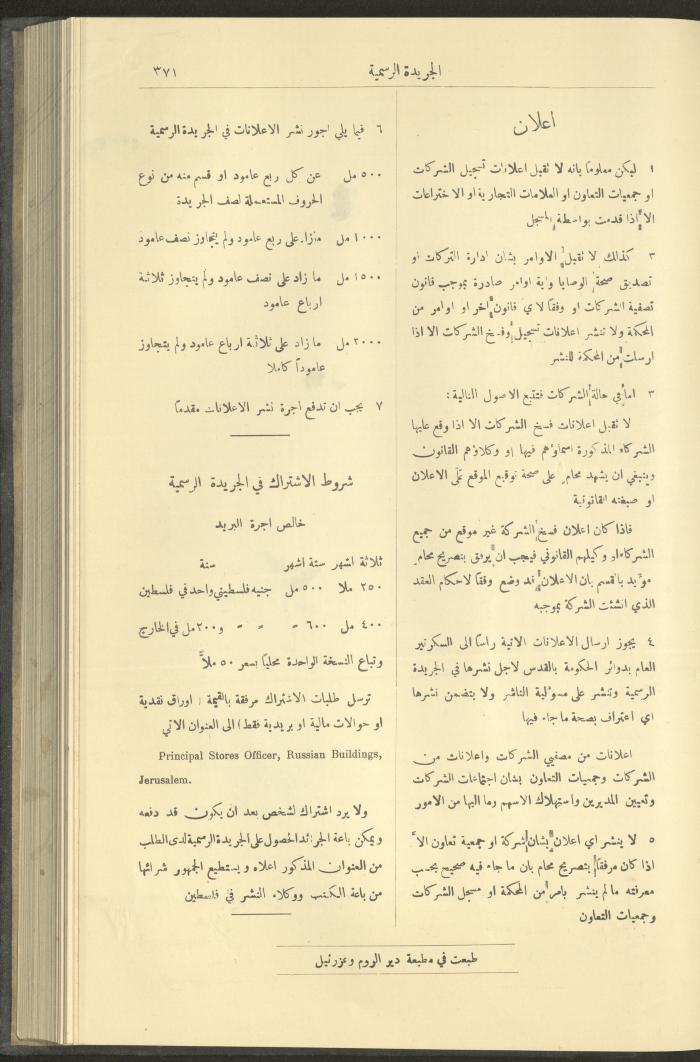 الجريدة الرسمية
٣٧١
اعلان
١ ليكن معلوماً بانه لا تقبل اعلانات تسجيل الشركات
او جمعيات التعاون او العلامات التجارية او الاختراعات
الا اذا قدمت بواسطة المسجل
٢ كذلك لا تقبل الاوامر بشان ادارة التركات او
تصديق صحة الوصايا واية اوامر صادرة بموجب قانون
تصفية الشركات او وفقاً لاي قانون اخر او اوامر من
المحكمة ولا تنشر اعلانات تسجيل وفسخ الشركات الا اذا
ارسلت من المحكمة للنشر
٣ اما في حالة الشركات فتتبع الاصول التالية:
لا تقبل اعلانات فسخ الشركات الا اذا وقع عليها
الشركاء المذكورة اسماؤهم فيها او وكلاؤهم القانون
وينبغي ان يشهد محام على صحة توقيع الموقع على الاعلان
او صبغته القانونية
فاذا كان اعلان فسخ الشركة غير موقع من جميع
الشركاء او وكيلهم القانوني فيجب ان يرفق بتصريح محام
مؤيد بالقسم بان الاعلان قد وضع وفقاً لاحكام العقد
الذي انشئت الشركة بموجبه
٤ يجوز ارسال الاعلانات الاتية راساً الى السكرتير
العام بدوائر الحكومة بالقدس لاجل نشرها في الجريدة
الرسمية وتنشر على مسؤلية الناشر ولا يتضمن نشرها
اي اعتراف بصحة ما جاء فيها
اعلانات من مصفيي الشركات واعلانات من
الشركات وجمعيات التعاون بشان اجتماعات الشركات
وتعيين المديرين واستهلاك الاسهم وما اليها من الامور
٥ لا ينشر اي اعلان بشان شركة او جمعية تعاون الا
اذا كان مرفقاً بتصريح محام بان ما جاء فيه صحيح بحسب
معرفته ما لم ينشر بامر من المحكمة او مسجل الشركات
وجمعيات التعاون
٦ فيما يلي اجور نشر الاعلانات في الجريدة الرسمية
٥٠٠ مل عن كل ربع عامود او قسم منه من نوع
الحروف المستعملة لصف الجريدة
١٠٠٠ مل مازاد على ربع عامود ولم يتجاوز نصف عامود
١٥٠٠ مل ما زاد على نصف عامود ولم يتجاوز ثلاثة
ارباع عامود
٢٠٠٠ مل ما زاد على ثلاثة ارباع عامود ولم يتجاوز
عاموداً كاملا
٧ يجب ان تدفع اجرة نشر الاعلانات مقدماً
شروط الاشتراك في الجريدة الرسمية
خالص اجرة البريد
ثلاثة اشهر ستة اشهر سنة
٢٥٠ ملا ٥٠٠ مل جنيه فلسطيني واحد في فلسطين
٤٠٠ مل ٦٠٠ = = = و٢٠٠ مل في الخارج
وتباع النسخة الواحدة محلياً بسعر ٥٠ ملاً
ترسل طلبات الاشتراك مرفقة بالقيمة (اوراق نقدية
او حوالات مالية او بريدية فقط) الى العنوان الاتي
Principal Stores Officer, Russian Buildings,
Jerusalem.
ولا يرد اشتراك لشخص بعد ان يكون قد دفعه
ويمكن باعة الجرائد الحصول على الجريدة الرسمية لدى الطلب
من العنوان المذكور اعلاه ويستطيع الجمهور شرائها
من باعة الكتب ووكلاء النشر في فلسطين
طبعت في مطبعة دير الروم وعزرئيل